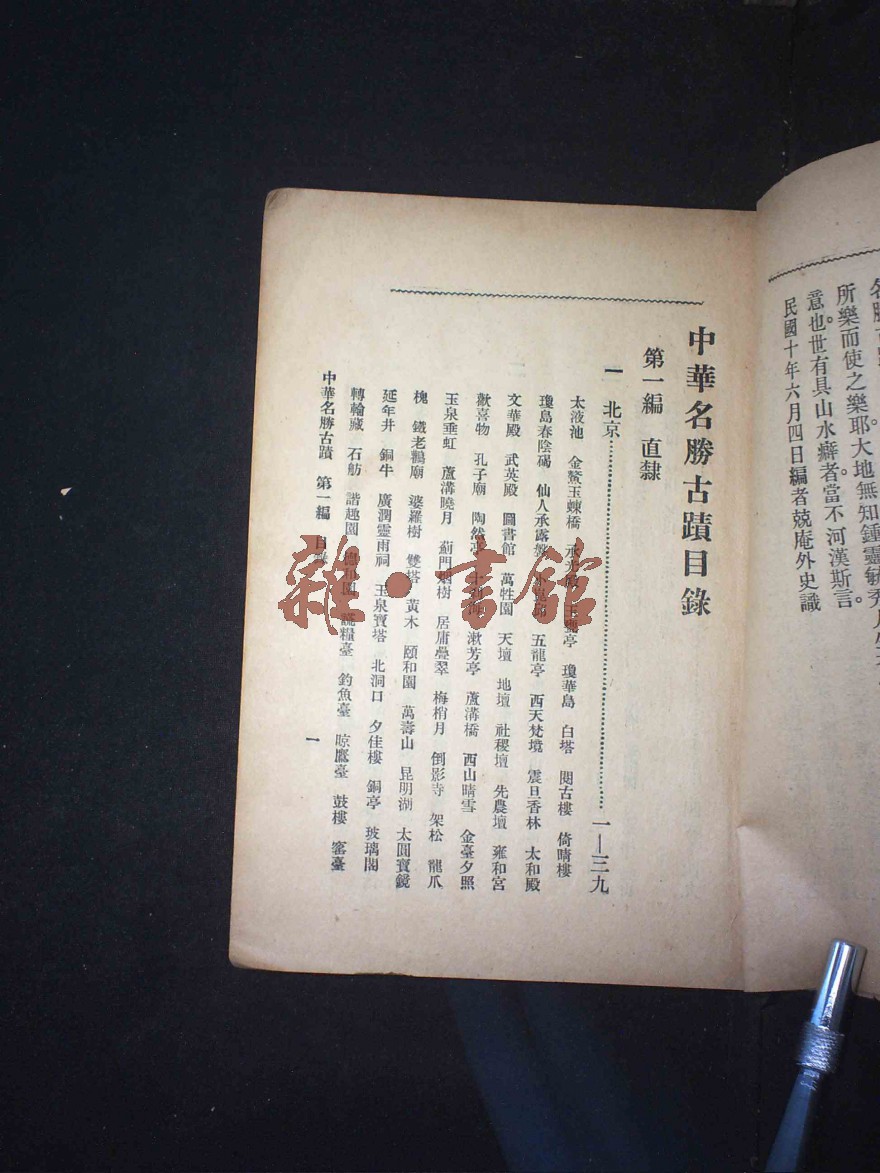 所樂而使之樂耶。大地無知鍾靈毓秀
意也。世有具山水癖者。當不河漢斯言。
民國十年六月四日編者兢庵外史識
中華名勝古蹟目錄
第一編 直隸
一 北京 一—三九
太液池 金鰲玉蝀橋 承光殿 玉甕亭 瓊華島 白塔 閱古樓 倚晴樓
瓊島春陰碣 仙人承露盤 五龍亭 西天梵境 震旦香林 太和殿
文華殿 武英殿 圖書館 萬牲園 天壇 地壇 社稷壇 先農壇 雍和宮
歡喜物 孔子廟 陶然亭 十刹海 漱芳亭 蘆溝橋 西山晴雪 金臺夕照
玉泉垂虹 蘆溝曉月 薊門烟樹 居庸疊翠 梅梢月 倒影寺 架松 龍爪
槐 鐵老鸛廟 婆羅樹 雙塔 黃木 頤和園 萬壽山 昆明湖 太圓寶鏡
延年井 銅牛 廣潤靈雨祠 玉泉寶塔 北洞口 夕佳樓 銅亭 玻璃閣
轉輪藏 石舫 諧趣園 謊糧臺 釣魚臺 晾鷹臺 鼓樓 窰臺
中華名勝古蹟 第一編 目錄
一
雜·書館